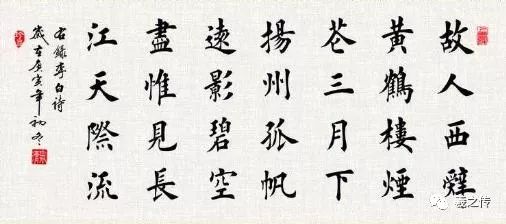 故人西辭
黃鶴樓煙
花三月下
揚州孤帆
遠影碧空
盡惟見長
江天際流
右錄李白詩
歲在庚寅年初冬
羲之传